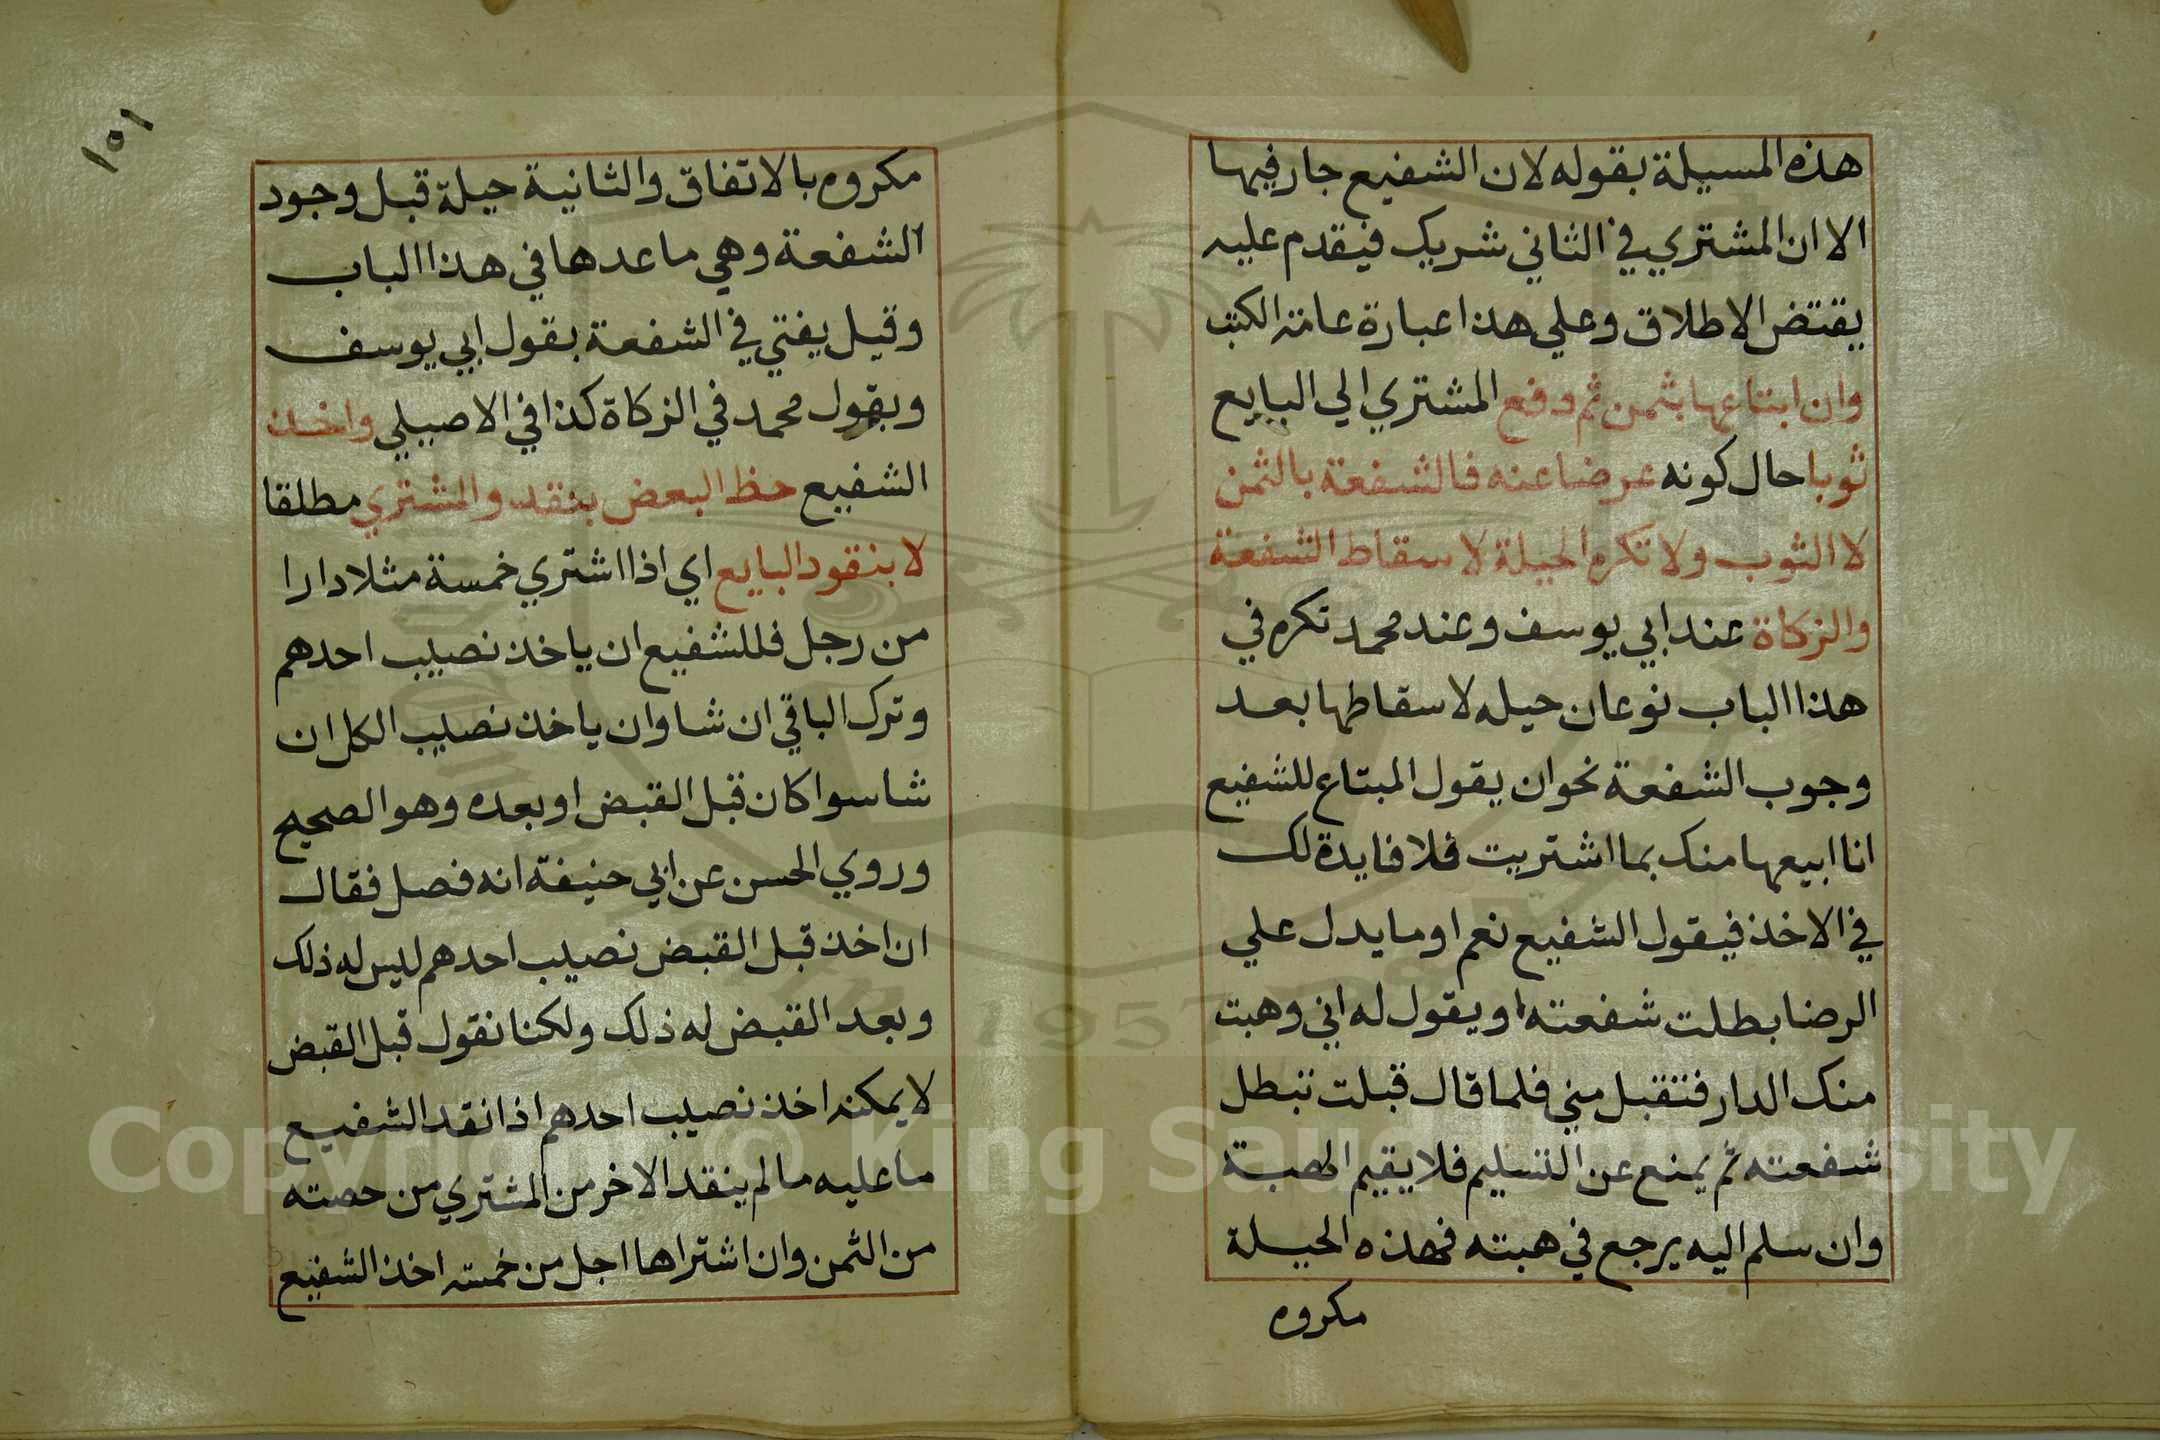 هذه المسيلة بقوله لان الشفيع جار فيها
الا ان المشتري في الثاني شريك فيقدم عليه
يقتض الاطلاق وعلي هذا عبارة عامة الكتب
وان ابتاعها بثمن ثم دفع المشتري الي البايع
ثوبا حال كونه عرضا عنه فالشفعة بالثمن
لا الثوب ولا تكره الحيلة لاسقاط الشفعة
والزكاة عند ابي يوسف وعند محمد تكره في
هذا الباب نوعان حيله لاسقاطها بعد
وجوب الشفعة نحو ان يقول المبتاع للشفيع
انا ابيعها منك بما اشتريت فلا فايدة لك
في الاخذ فيقول الشفيع نعم او ما يدل علي
الرضا بطلت شفعته او يقول له اني وهبت
منك الدار فتقبل مني فلما قال قبلت تبطل
شفعته ثم يمنع عن التسليم فلا يقيم الهبة
وان سلم اليه يرجع في هبته فهذه الحيلة
مكروه
١٥١
مكروه بالاتفاق والثانية حيلة قبل وجود
الشفعة وهي ما عدها في هذا الباب
وقيل يفتي في الشفعة بقول ابي يوسف
وبقول محمد في الزكاة كذا في الاصيلي واخذ
الشفيع حظ البعض بنقد والمشتري مطلقا
لا بنقود البايع اي اذا اشتري خمسة مثلا دارا
من رجل فللشفيع ان ياخذ نصيب احدهم
وترك الباقي ان شا وان ياخذ نصيب الكل ان
شا سوا كان قبل القبض او بعده وهو الصحيح
وروي الحسن عن ابي حنيفة انه فصل فقال
ان اخذ قبل القبض نصيب احدهم ليس له ذلك
وبعد القبض له ذلك ولكنا نقول قبل القبض
لا يمكنه اخذ نصيب احدهم اذا نقد الشفيع
ما عليه ما لم ينقد الاخر من المشتري من حصته
من الثمن وان اشتراها اجل من خمسة اخذ الشفيع
Copyright © King Saud University
1957